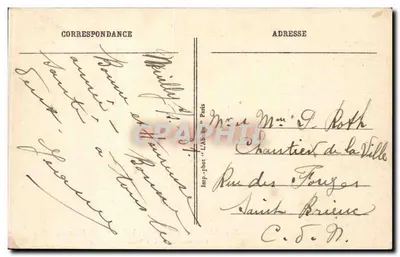 CORRESPONDANCE
ADRESSE
Neuilly
Bonne et Heureuse
année - Bonne
Santé à tous les
deux.
Imp.-phot "L'Abeille" Paris
CPAPHIL
Mr et Mme D. Roth
Chantier de la Ville
Rue des Forges
Saint Brieuc
C. d. N.